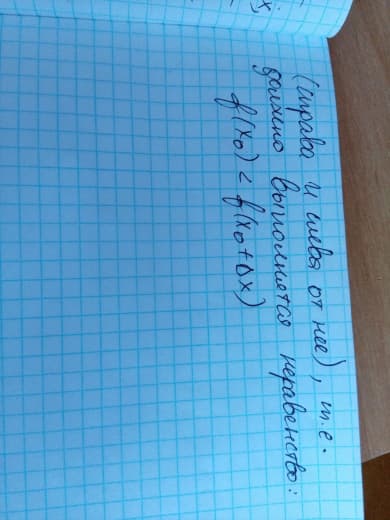 (справа и слева от нее), т.е.
должно выполняется неравенство:
f(x₀) < f(x₀+Δx)